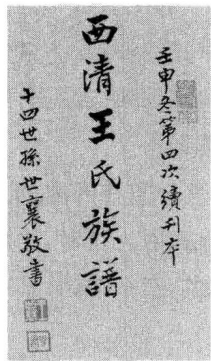 壬申冬第四次續刊本
西清王氏族譜
十四世孫世襄敬書